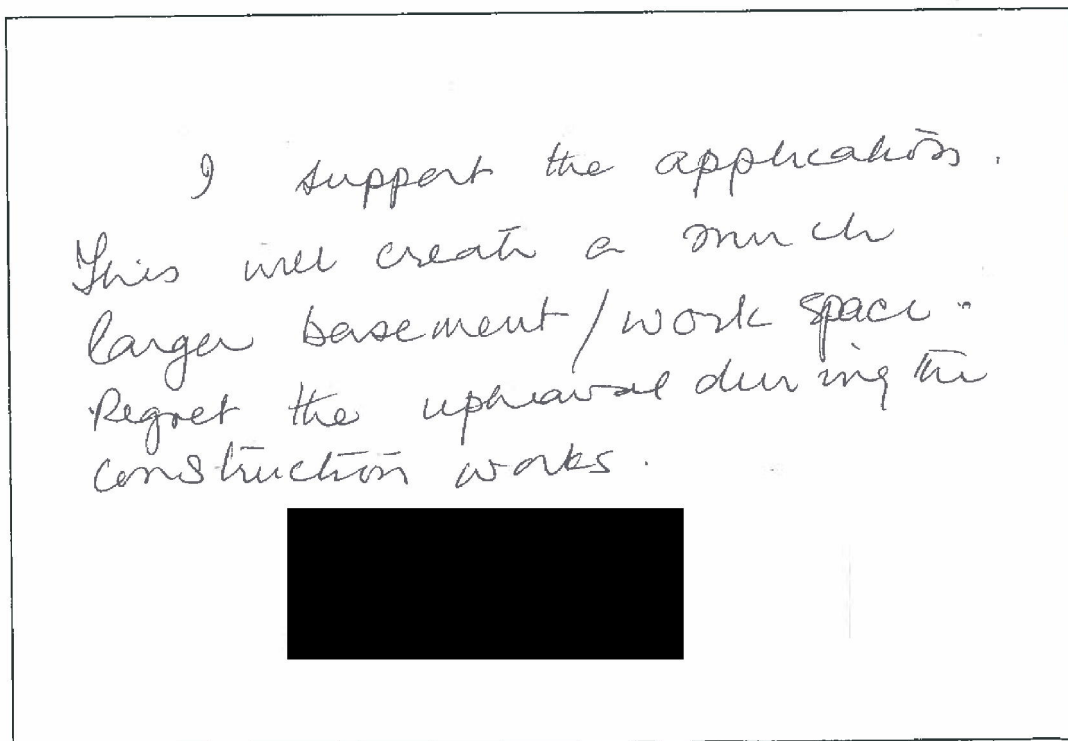 I support the application.
This will create a much
larger basement/work space.
Regret the upheaval during the
construction works.